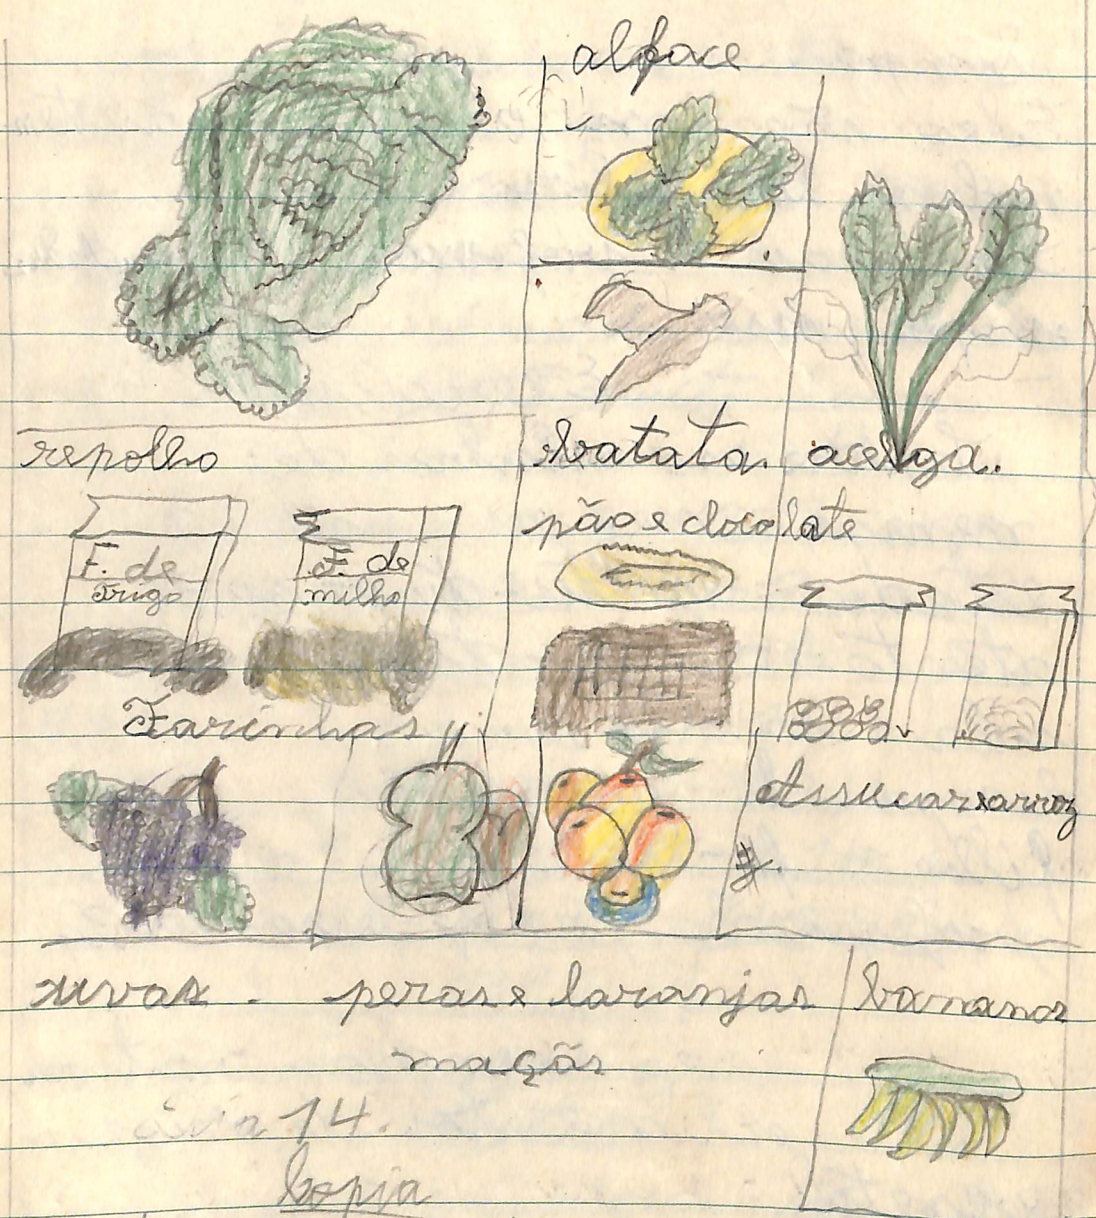 alface
repolho
batata. acelga.
pão e chocolate
F. de
Trigo
F. de
milho
Farinhas
Assucar e arroz
uvas - peras e laranjas
maçãs
bananas
dia 14.
Copia